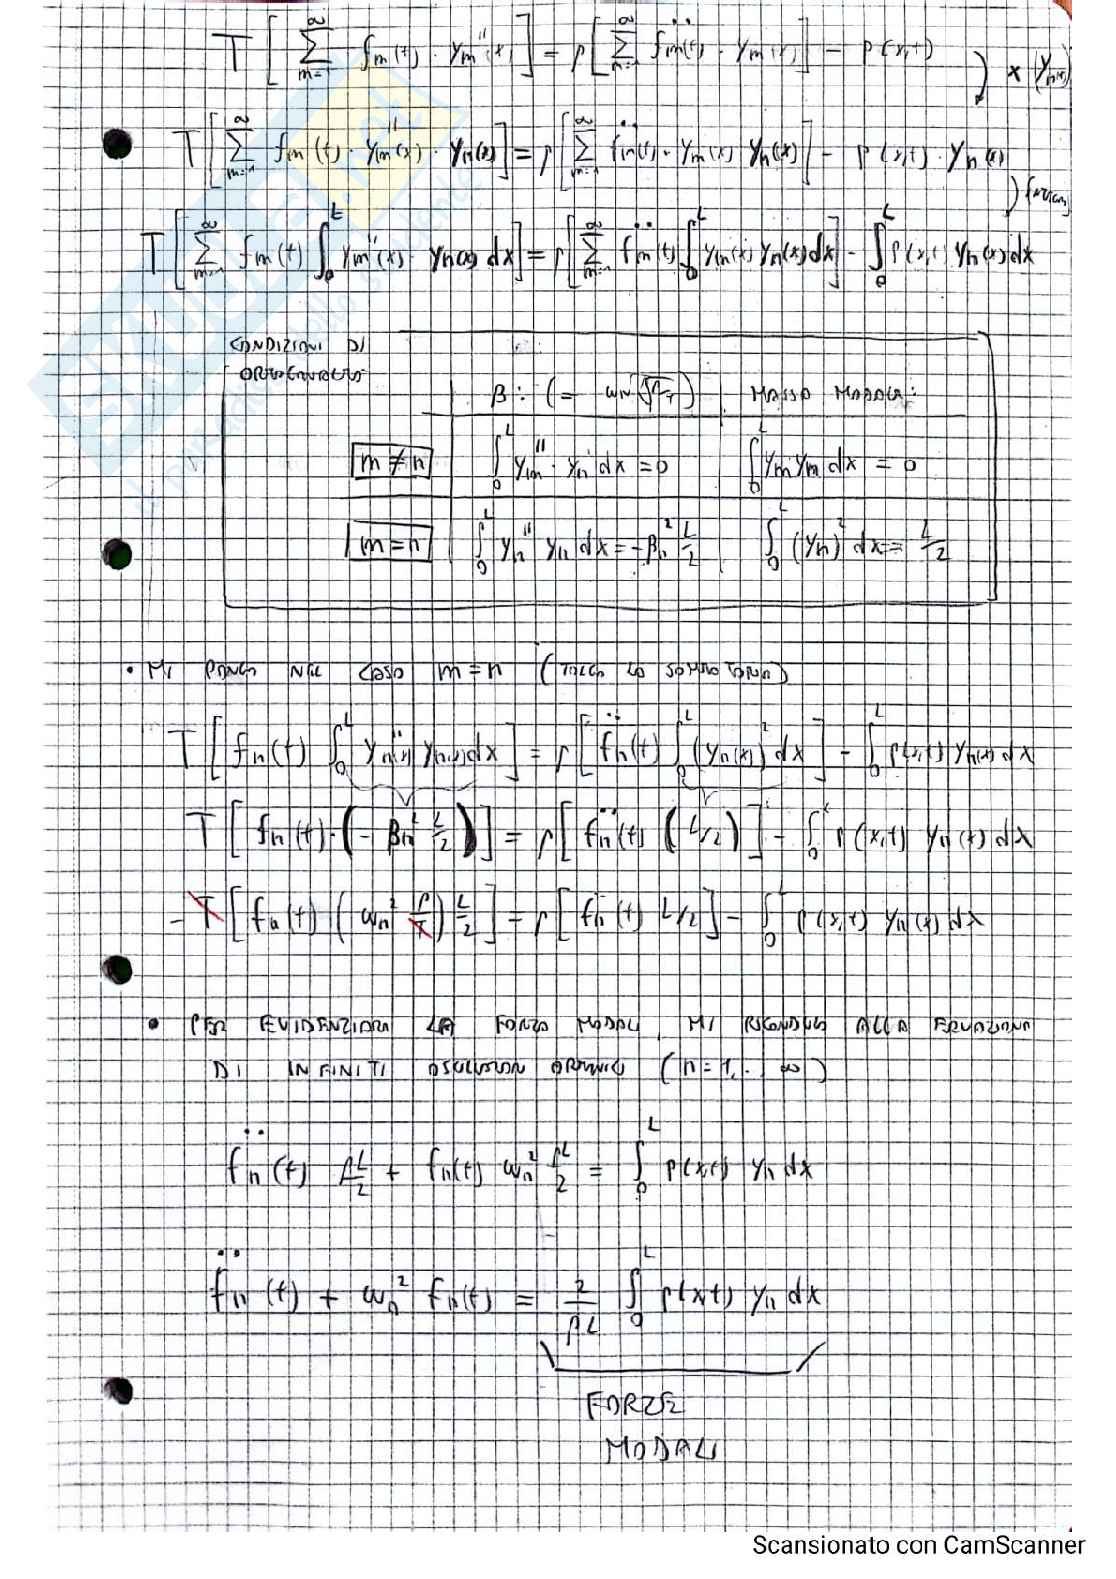 T [ Σ_{m=1}^{∞} fm(t) · ym''(x) ] = ρ [ Σ_{m=1}^{∞} f̈m(t) · ym(x) ] − p(x,t)
x (yn(x))
T [ Σ_{m=1}^{∞} fm(t) · ym''(x) · yn(x) ] = ρ [ Σ_{m=1}^{∞} f̈m(t) · ym(x) yn(x) ] − p(x,t) · yn(x)
T [ Σ_{m=1}^{∞} fm(t) ∫_0^L ym''(x) · yn(x) dx ] = ρ [ Σ_{m=1}^{∞} f̈m(t) ∫_0^L ym(x) yn(x) dx ] − ∫_0^L p(x,t) yn(x) dx
CONDIZIONI DI
ORTOGONALITÀ
β : ( = ωn √ρ/T ) MASSA MODALE :
m ≠ n ∫_0^L ym'' · yn dx = 0 ∫_0^L ym ym dx = 0
m = n ∫_0^L yn'' yn dx = −βn² L/2 ∫_0^L (yn)² dx = L/2
• MI PONGO NEL CASO m = n (TOLGO LA SOMMATORIA)
T [ fn(t) ∫_0^L yn''(x) yn(x) dx ] = ρ [ f̈n(t) ∫_0^L (yn(x))² dx ] − ∫_0^L p(x,t) yn(x) dx
T [ fn(t) · (− βn² L/2) ] = ρ [ f̈n(t) (L/2) ] − ∫_0^L p(x,t) yn(x) dx
− T [ fn(t) · (ωn² ρ/T) L/2 ] = ρ [ f̈n(t) L/2 ] − ∫_0^L p(x,t) yn(x) dx
• PER EVIDENZIARE LE FORZE MODALI, MI RICONDUCO ALLA EQUAZIONE
DI INFINITI (n = 1, .. ∞)
f̈n(t) ρL/2 + fn(t) ωn² ρL/2 = ∫_0^L p(x,t) yn dx
f̈n(t) + ωn² fn(t) = 2/ρL ∫_0^L p(x,t) yn dx
FORZE
MODALI
Scansionato con CamScanner